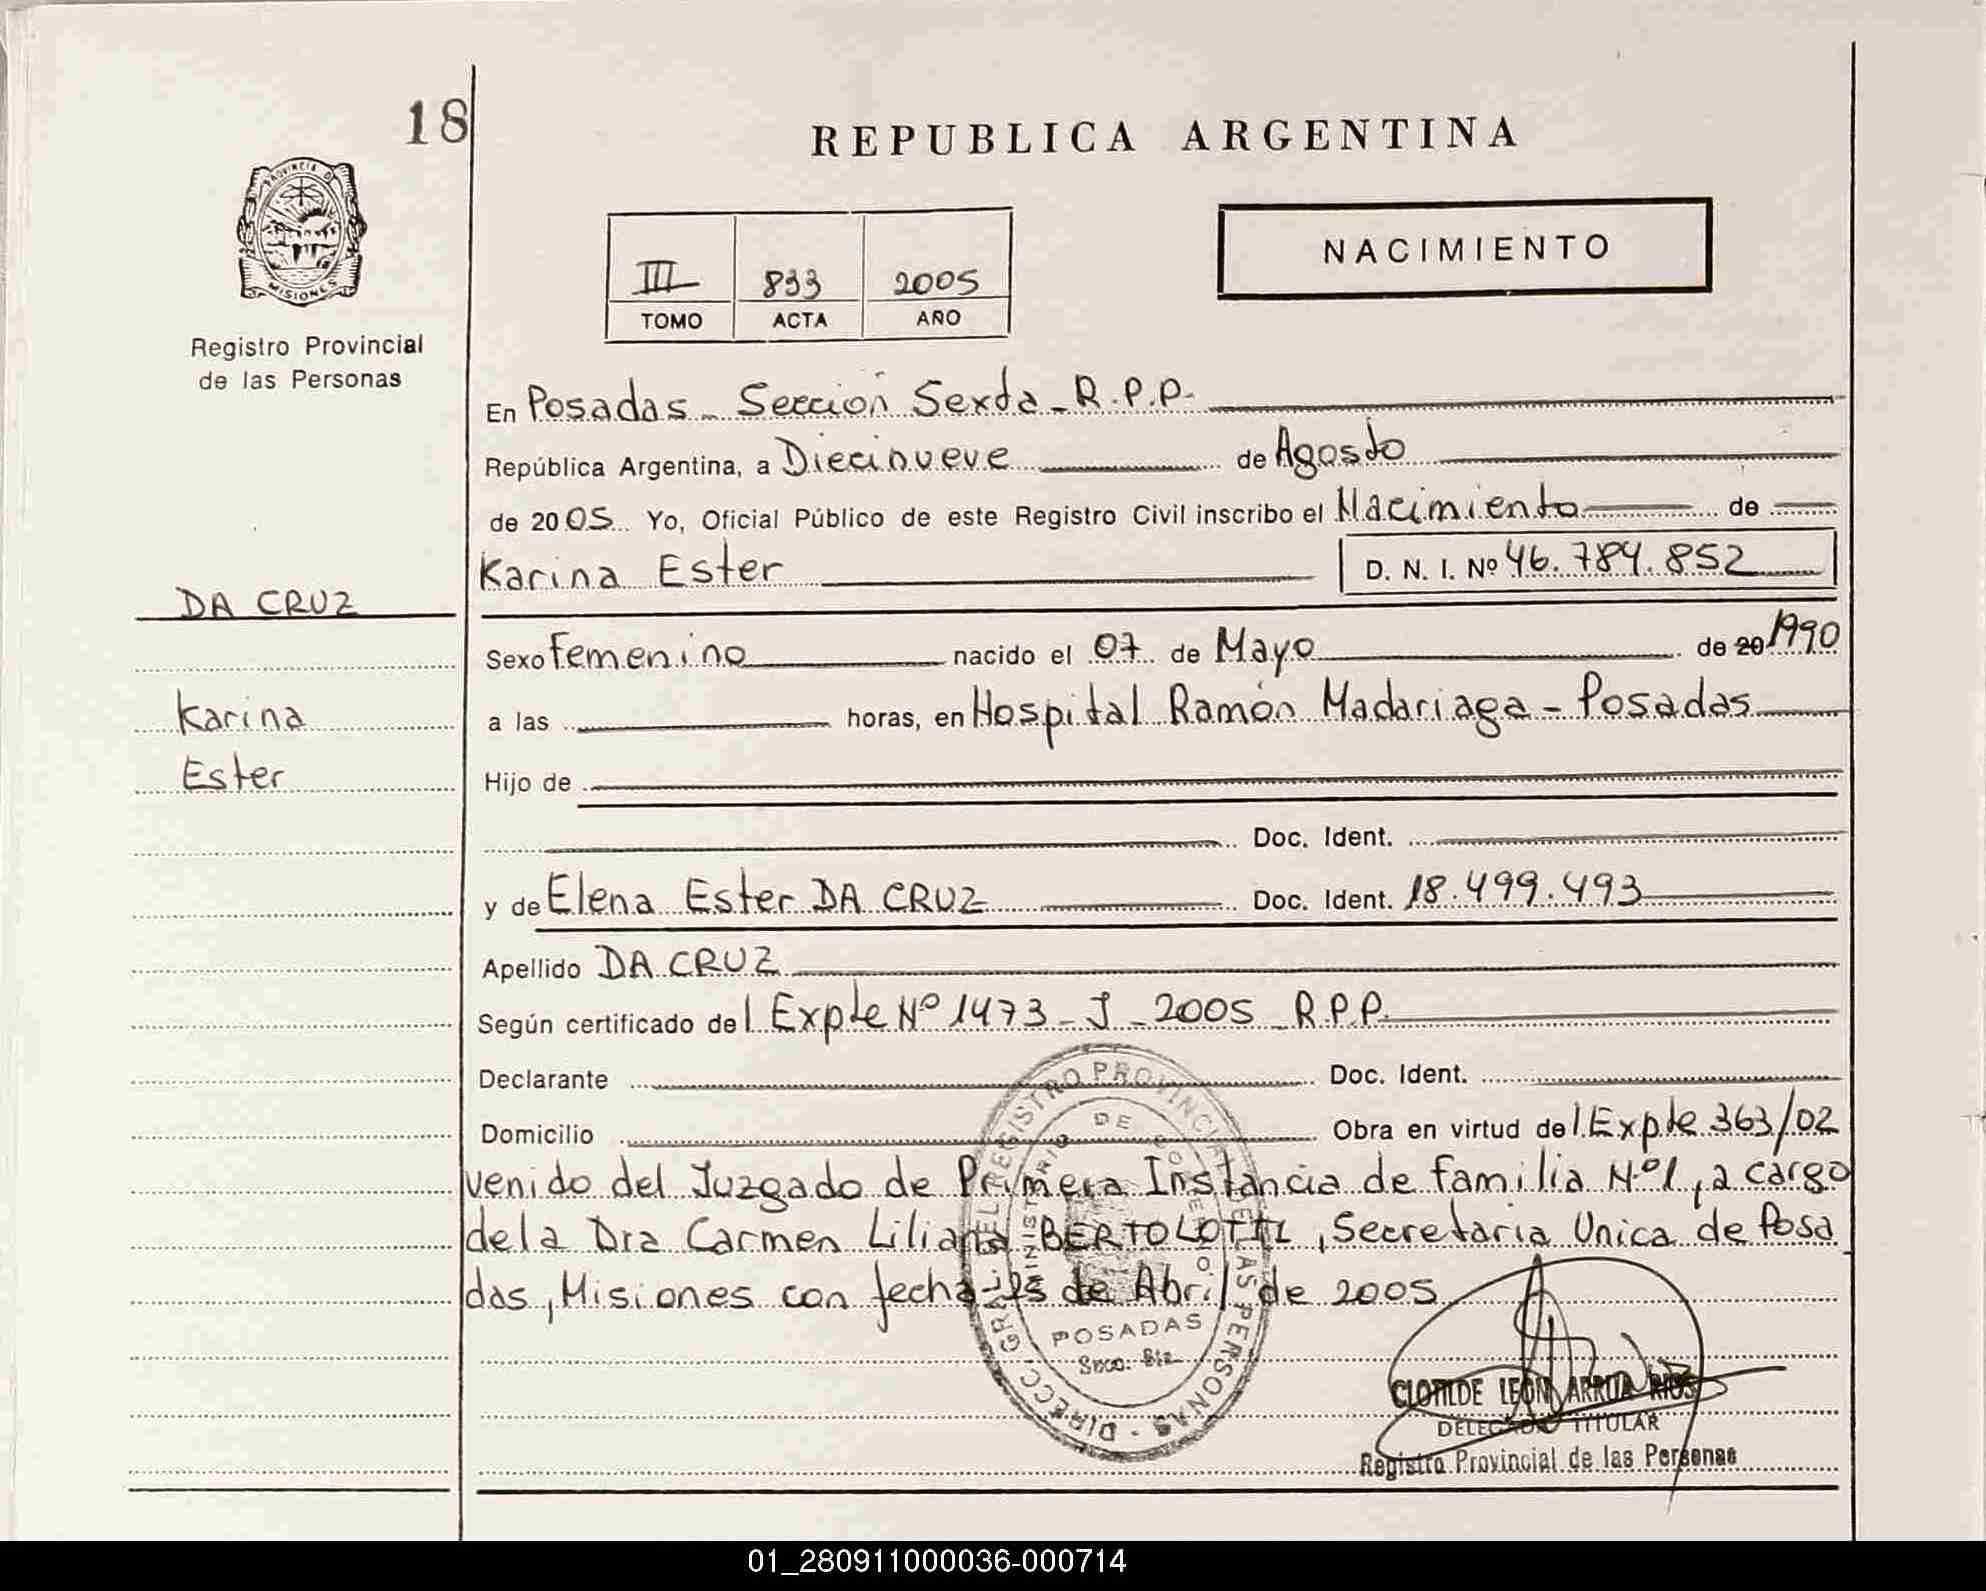 18
REPUBLICA ARGENTINA
PROVINCIA D
MISIONES
Registro Provincial
de las Personas
III 833 2005
TOMO ACTA AÑO
NACIMIENTO
En Posadas - Sección Sexta - R.P.P.
República Argentina, a Diecinueve de Agosto
de 2005 Yo, Oficial Público de este Registro Civil inscribo el Nacimiento de
Karina Ester D. N. I. Nº 46.784.852
DA CRUZ
Sexo Femenino nacido el 07 de Mayo de 20 1990
Karina
a las horas, en Hospital Ramón Madariaga - Posadas
Ester
Hijo de
Doc. Ident.
y de Elena Ester DA CRUZ Doc. Ident. 18.499.493
Apellido DA CRUZ
Según certificado del Expte Nº 1473 - J - 2005 R.P.P.
Declarante Doc. Ident.
Domicilio Obra en virtud del Expte 363/02
venido del Juzgado de Primera Instancia de familia Nº 1, a cargo
de la Dra Carmen Liliana BERTOLOTTI, Secretaria Unica de Posa
das, Misiones con fecha de Abril de 2005
DIRECC. GRAL. DEL REGISTRO PROVINCIAL DE LAS PERSONAS
MINISTERIO DE GOBIERNO
POSADAS
Secc. 6ta
CLOTILDE LEON ARRUA RIOS
DELEGADO TITULAR
Registro Provincial de las Personas
01_280911000036-000714